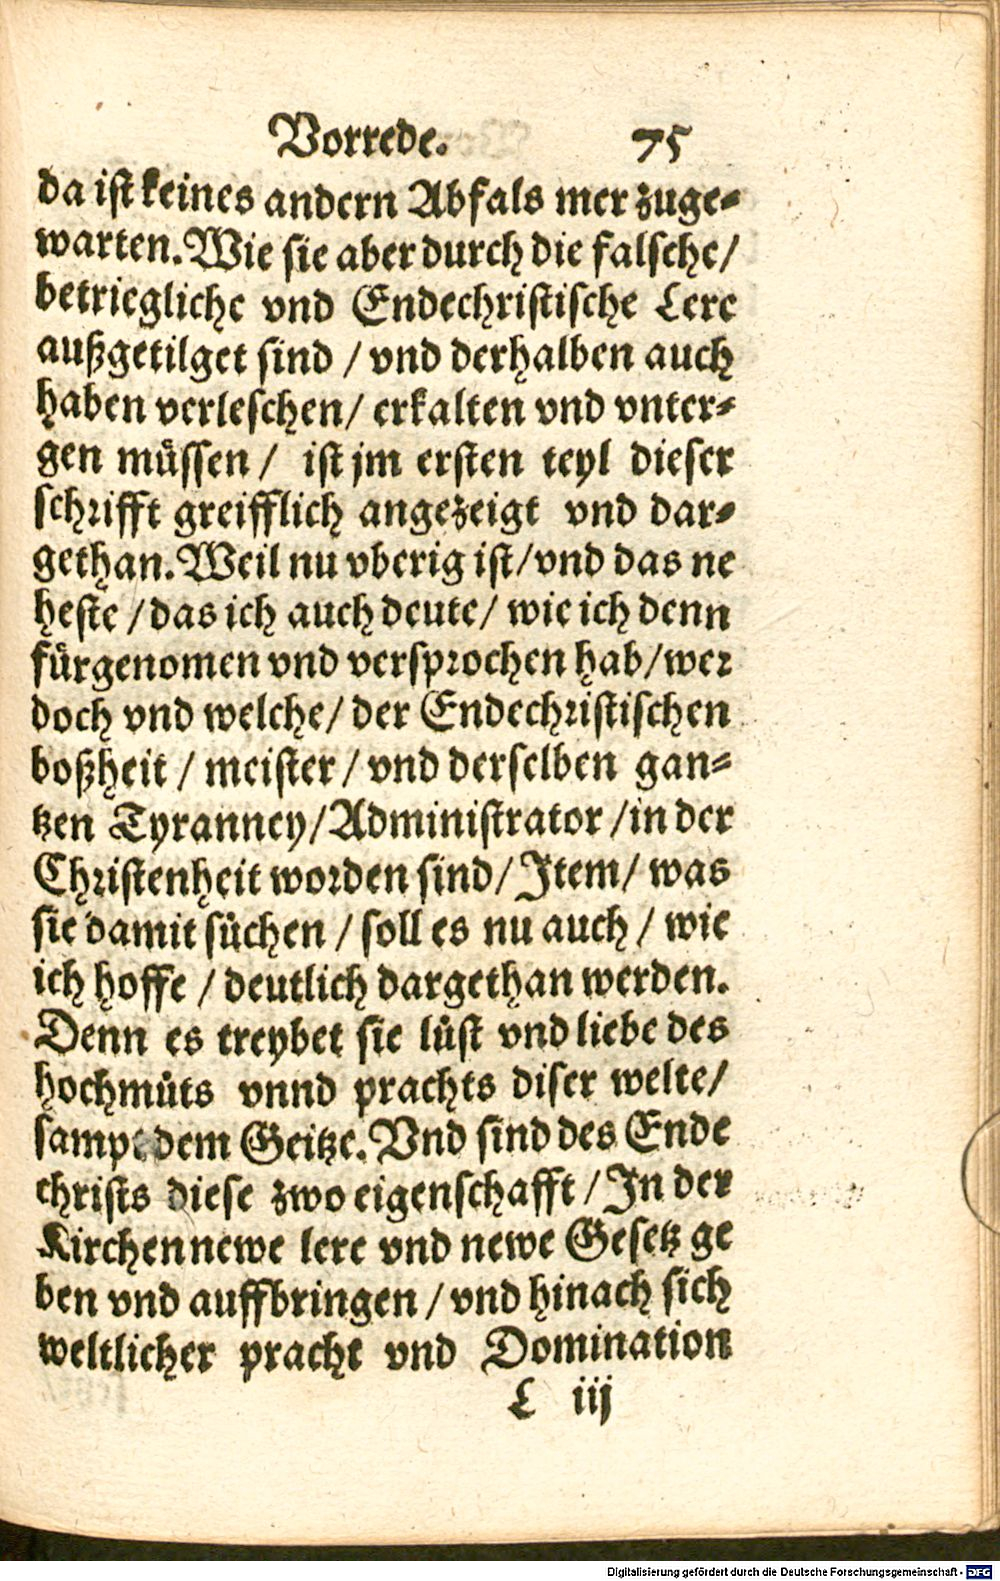 Vorrede. 75
da ist keines andern Abfals mer zuge-
warten. Wie sie aber durch die falsche/
betriegliche vnd Endechristische Lere
außgetilget sind / vnd derhalben auch
haben verleschen/ erkalten vnd vnter-
gen müssen / ist jm ersten teyl dieser
schrifft greifflich angezeigt vnd dar-
gethan. Weil nu vberig ist/vnd das ne
heste / das ich auch deute/ wie ich denn
fürgenomen vnd versprochen hab/wer
doch vnd welche/ der Endechristischen
boßheit / meister / vnd derselben gan-
tzen Tyranney/Administrator /in der
Christenheit worden sind/ Item/ was
sie damit süchen / soll es nu auch / wie
ich hoffe / deutlich dargethan werden.
Denn es treybet sie lüst vnd liebe des
hochmüts vnnd prachts diser welte/
sampt dem Geitze. Vnd sind des Ende
christs diese zwo eigenschafft / In der
Kirchen newe lere vnd newe Gesetz ge
ben vnd auffbringen / vnd hinach sich
weltlicher pracht vnd Domination
L iij
Digitalisierung gefördert durch die Deutsche Forschungsgemeinschaft - DFG